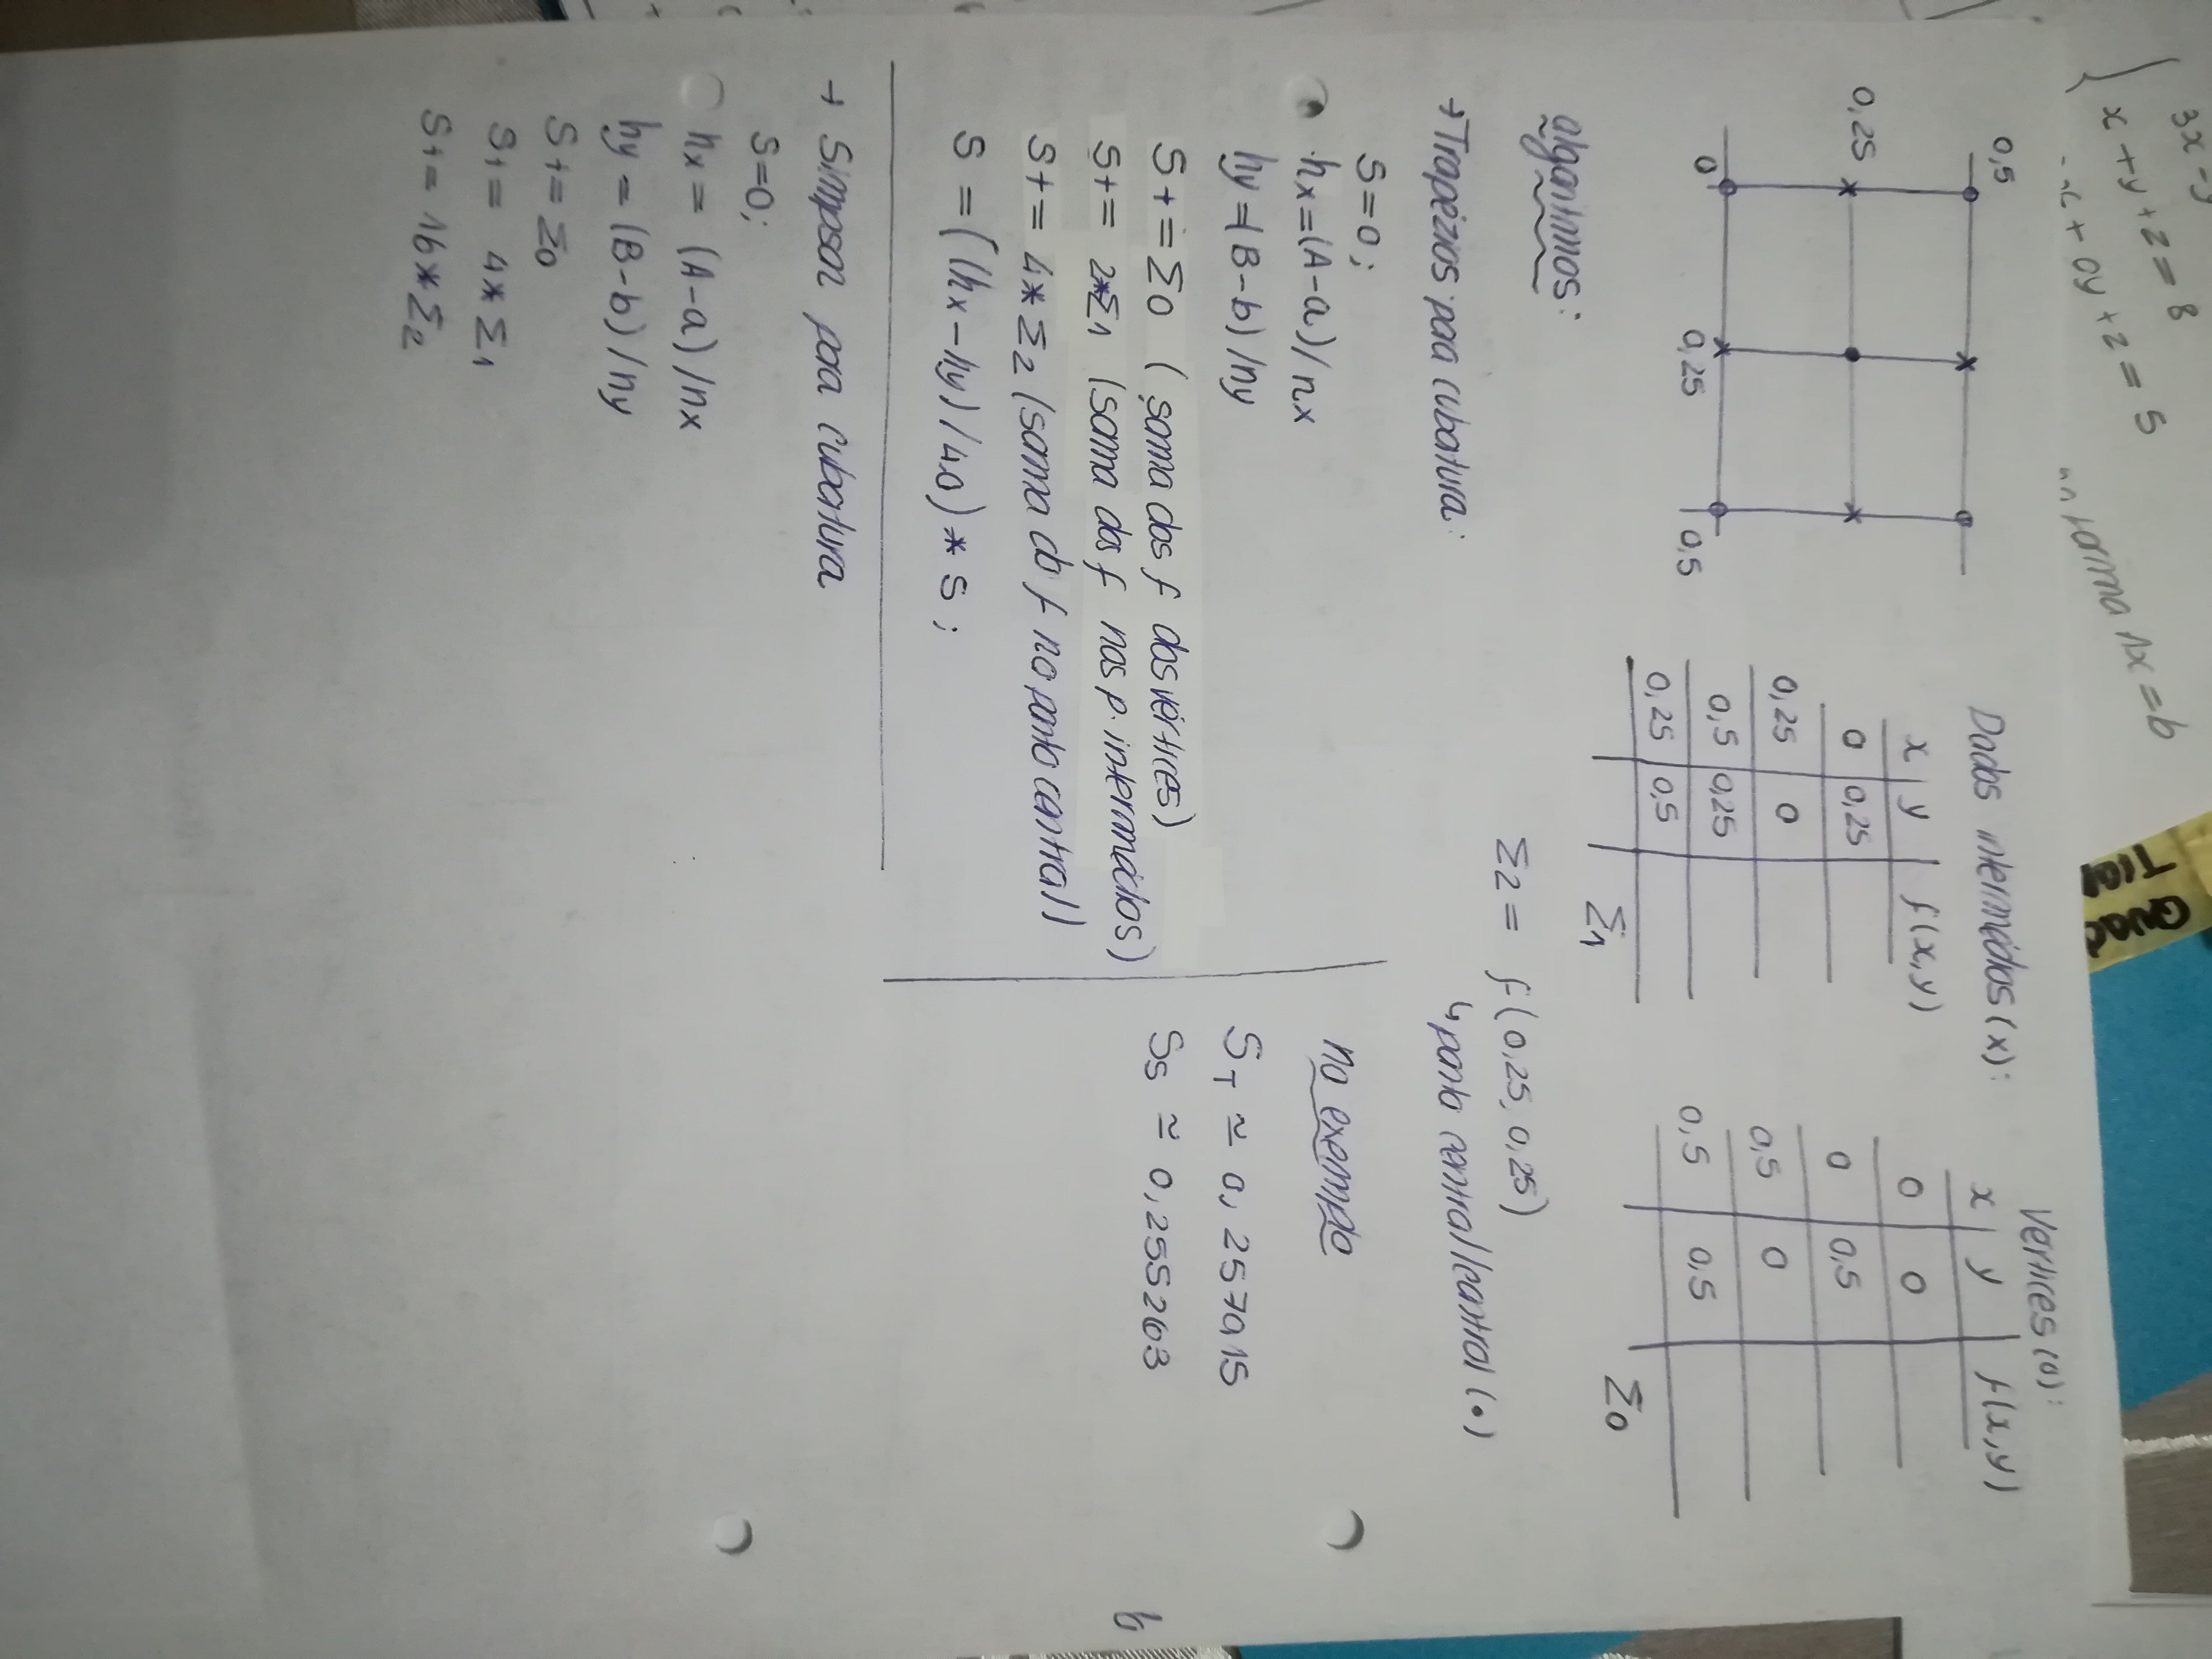 3x - y
x + y + z = 8
x + 0y + z = 5
forma Ax = b
Quad
0,5
0,25
0
0,25
0,5
Dados intermédios (x):
x | y | f(x,y)
0 | 0,25
0,25 | 0
0,5 | 0,25
0,25 | 0,5
Σ1
Vértices (o):
x | y | f(x,y)
0 | 0
0 | 0,5
0,5 | 0
0,5 | 0,5
Σ0
Σ2 = f(0,25, 0,25)
↳ ponto central/central (•)
algoritmos:
→ Trapézios para cubatura:
S=0;
hx=(A-a)/nx
hy=(B-b)/ny
S+=Σ0 (soma dos f dos vértices)
S+= 2*Σ1 (soma dos f nos p. intermédios)
S+= 4*Σ2 (soma do f no ponto central)
S =((hx-hy)/4.0)*S;
no exemplo
ST ≃ 0,257915
SS ≃ 0,255263
→ Simpson para cubatura
S=0;
hx= (A-a)/nx
hy = (B-b)/ny
S+= Σ0
S+= 4*Σ1
S+= 16*Σ2